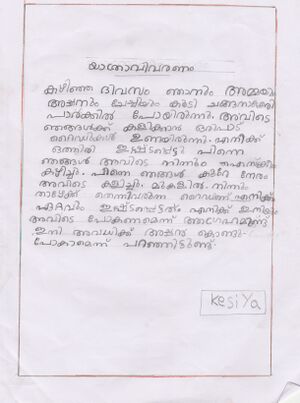 യാത്രാവിവരണം
കഴിഞ്ഞ ദിവസം ഞാനും അമ്മയും
അപ്പനും ചേച്ചിയും കൂടി
പാർക്കിൽ പോയിരുന്നു. അവിടെ
ഞങ്ങൾക്ക് കളിക്കാൻ ഒരുപാട്
റൈഡുകൾ ഉണ്ടായിരുന്നു. എനിക്ക്
ഒത്തിരി ഇഷ്ടപ്പെട്ടു പിന്നെ
ഞങ്ങൾ അവിടെ നിന്നും
കഴിച്ചു. പിന്നെ ഞങ്ങൾ കുറേ നേരം
അവിടെ കളിച്ചു. മുകളിൽ നിന്നും
താഴേക്ക് തെന്നിവരുന്ന റൈഡാണ് എനിക്ക്
ഏറ്റവും ഇഷ്ടപ്പെട്ടത്. എനിക്ക് ഇനിയും
അവിടെ പോകണമെന്ന് ആഗ്രഹമുണ്ട്
ഇനി അവധിക്ക് അപ്പൻ കൊണ്ടു-
പോകാമെന്ന് പറഞ്ഞിട്ടുണ്ട്.
kesiya